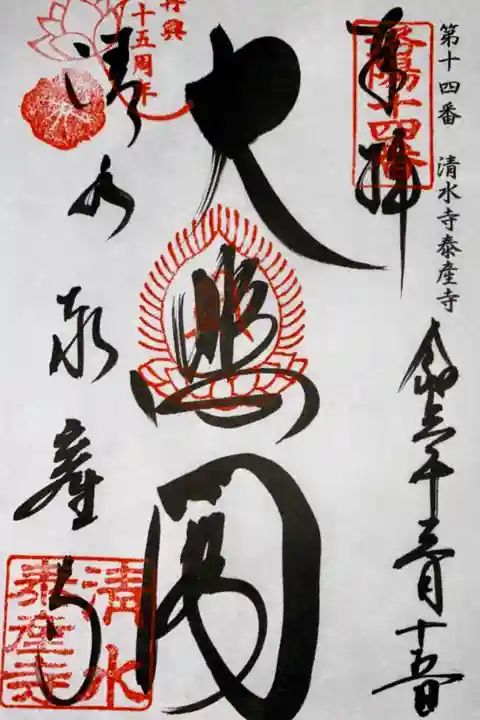 第十四番 清水寺泰産寺
奉拝
洛陽十四番
令和 年三月十五日
大悲閣
再興
十五周年
清水泰産寺
清水
泰産寺